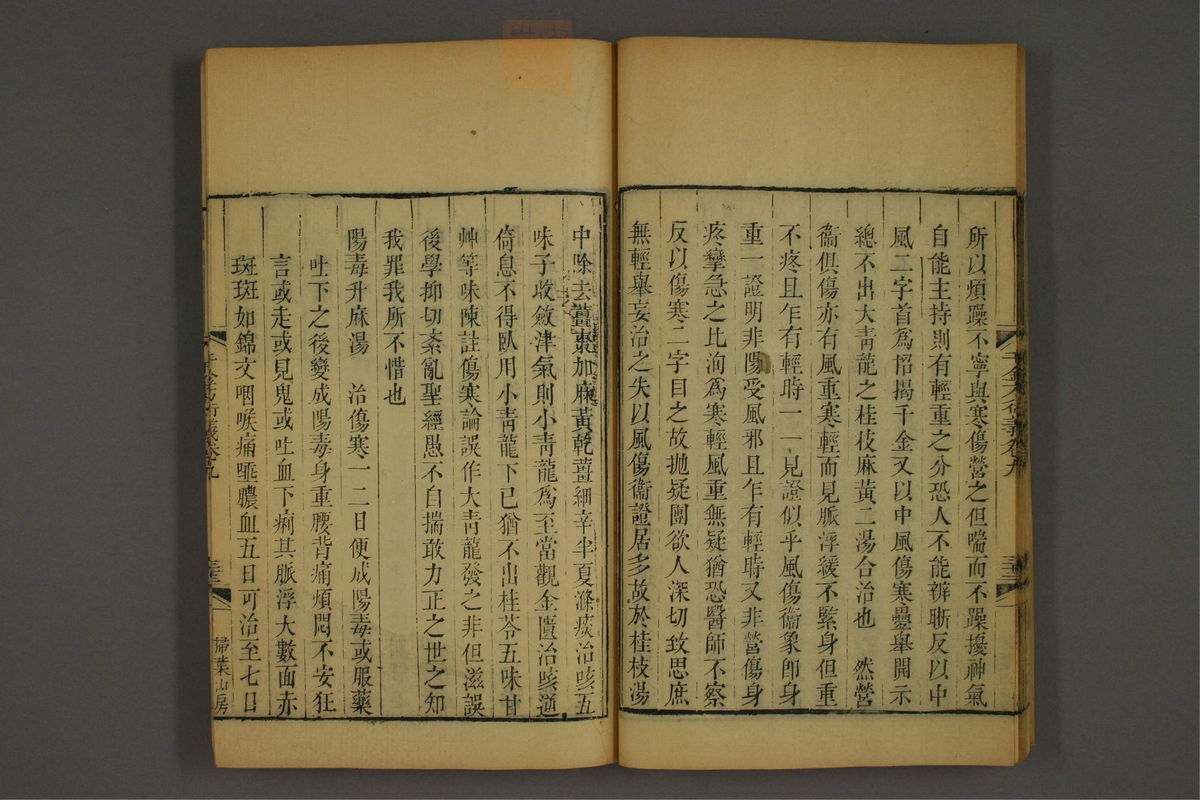 所以煩躁不寧與寒傷營之但喘而不躁擾神氣
自能主持則有輕重之分恐人不能辨晣反以中
風二字首爲招揭千金又以中風傷寒疊舉開示
總不出大靑龍之桂枝麻黃二湯合治也 然營
衞俱傷亦有風重寒輕而見脈浮緩不緊身但重
不疼且乍有輕時一一見證似乎風傷衞象卽身
重一證明非陽受風邪且乍有輕時又非營傷身
疼攣急之比洵爲寒輕風重無疑猶恐醫師不察
反以傷寒二字目之故拋疑團欲人深切致思庶
無輕舉妄治之失以風傷衞證居多故於桂枝湯
千金方衍義卷九
中除去薑棗加麻黃乾薑細辛半夏滌痰治咳五
味子收斂津氣則小靑龍爲至當觀金匱治咳逆
倚息不得臥用小靑龍下已猶不出桂苓五味甘
艸等味陳註傷寒論誤作大靑龍發之非但滋誤
後學抑切紊亂聖經愚不自揣敢力正之世之知
我罪我所不惜也
陽毒升麻湯 治傷寒一二日便成陽毒或服藥
吐下之後變成陽毒身重腰背痛煩悶不安狂
言或走或見鬼或吐血下痢其脈浮大數面赤
斑斑如錦文咽喉痛唾膿血五日可治至七日
千金方衍義卷九
掃葉山房